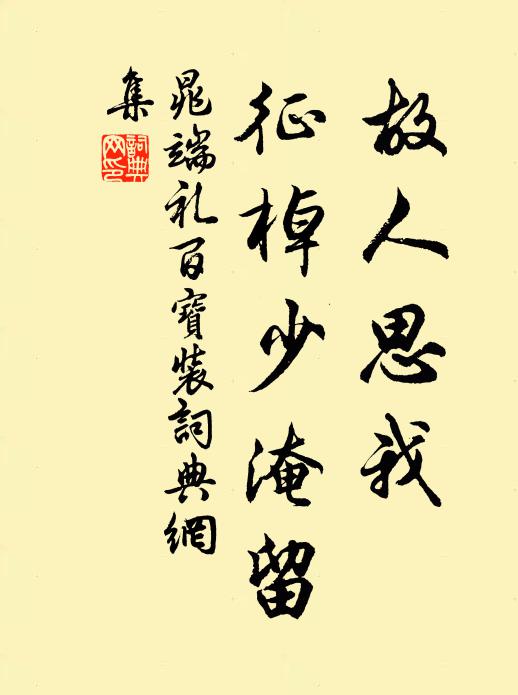 故人思我
征棹少淹留
晁端礼百寶装詞典網
集
詞典网印